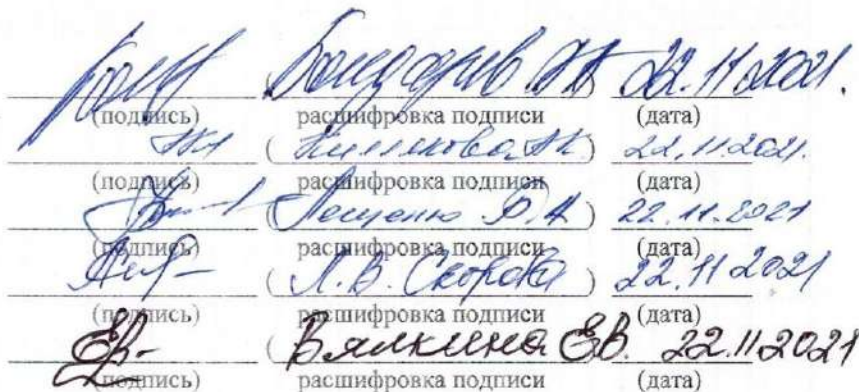 22.11.2021.
(подпись) расшифровка подписи (дата)
( ) 22.11.2021.
(подпись) расшифровка подписи (дата)
( Лещенко ) 22.11.2021
(подпись) расшифровка подписи (дата)
( Л.В. ) 22.11 2021
(подпись) расшифровка подписи (дата)
( Вялкина ЕВ. 22.11.2021
(подпись) расшифровка подписи (дата)